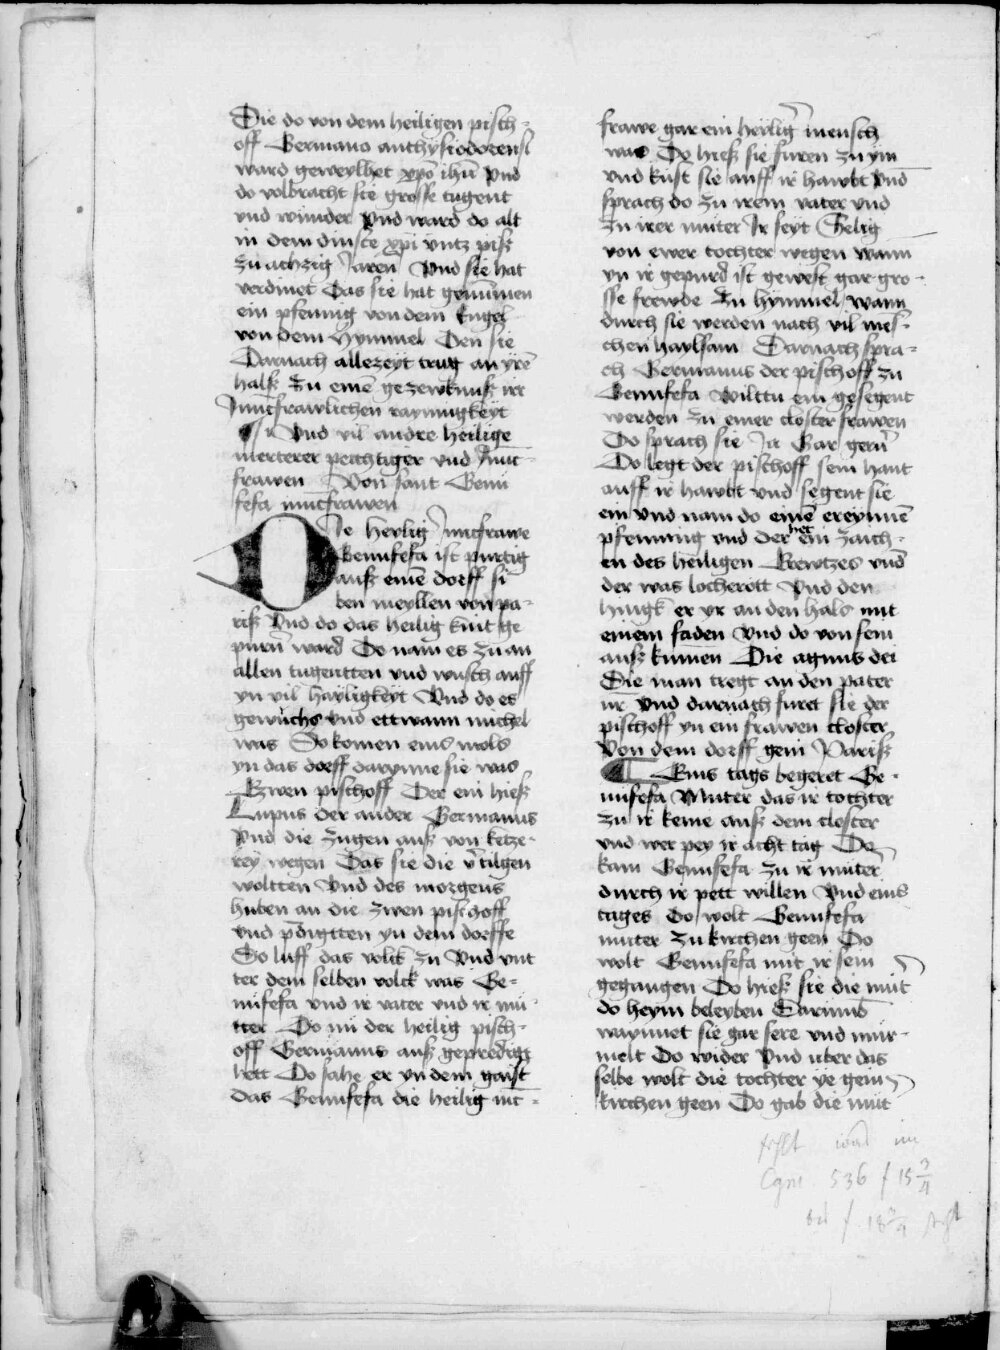 Die do von dem heiligen pisch-
off Germano anthysiodorensi
ward geweylhet xpō ihū Vnd
do volbracht sie grosse tugent
vnd wunder Vnd ward do alt
in dem dinste xpi vntz piß
zu achzig Jaren Vnd sie hat
verdinet Das sie hat genūmen
ein pfennig von dem Engel
von dem Hymmel Den sie
Darnach allezeyt trug an yrē
halß Zu einē gezewknuß irr
Junckfrawlichen raynnigkeyt
Vnd vil andre heilige
merterer peichtiger vnd Junc-
frawen Von sant Genu
fefa junckfrawen
Die heylig Junckfrawe
Genufefa ist purtig
auß einē dorff si
ben meyllen von pa-
riß Vnd do das heilig kint ge
purn ward Do nam es zu an
allen tugentten vnd wusch auff
yn vil hayligkeyt Vnd do es
gewuchs vnd ettwann michel
was Do komen eins mols
yn das dorff darynne sie was
Zwen pischoff Der ein hieß
Lupus der ander Germanus
Vnd die zugen auß von ketze-
rey wegen Das sie die v̄tilgen
woltten Vnd des morgens
huben an die zwen pischoff
vnd p̄digtten yn dem dorffe
Do luff das volck zu Vnd vnt
ter dem selben volck was Ge-
nufefa vnd ir vater vnd ir mu-
tter Do nu der heilig pisch-
off Germanus auß gepredigt
hett Do sahe er yn dem gaist
das Genufefa die heilig iūc-
frawe gar ein heilig mensch
was Do hieß sie furen zu ym
vnd kust sie auff ir hawbt Vnd
sprach do zu irem vater vnd
zu irer muter Ir seyt Selig
von ewer tochter wegen wann
yn ir gepurd ist gewest gar gro-
sse frewde Zu hymmel wann
durch sie werden nach vil mes-
chen haylsam Darnach spra-
ch Germanus der pischoff zu
Genufefa Wilttu ein gesegent
werden zu einer closter frawen
Do sprach sie Ja Gar gern
Do legt der pischoff sein hant
auff ir hawbt vnd segent sie
ein vnd nam do einē ereynnē
pfennung vnd der het ein zaich-
en des heiligen Krewtzes vnd
der was locherott Vnd den
hingk er yr an den hals mit
einem faden Vnd do von sein
auß kumen Die agnus dei
Die man tregt an den pater
nr̄ Vnd darnach furet sie der
pischoff yn ein frawen closter
Von dem dorff gein Pariß
Eins tags begeret Ge-
nufefa Muter das ir tochter
zu ir keme auß dem closter
vnd wer pey ir acht tag Do
kam Genufefa zu ir muter
durch ir pett willen Vnd eins
tages Do wolt Genufefa
muter zu kirchen geen Do
wolt Genufefa mit ir sein
gegangen Do hieß sie die mūt
do heym beleyben Darumb
waynnet sie gar sere vnd mur-
melt Do wider Vnd uber das
selbe wolt die tochter ye gein
kirchen geen Do gab die mut
fehlt was im
Cgm. 536 f 15 3/4
bis f. 18 2/4 steht